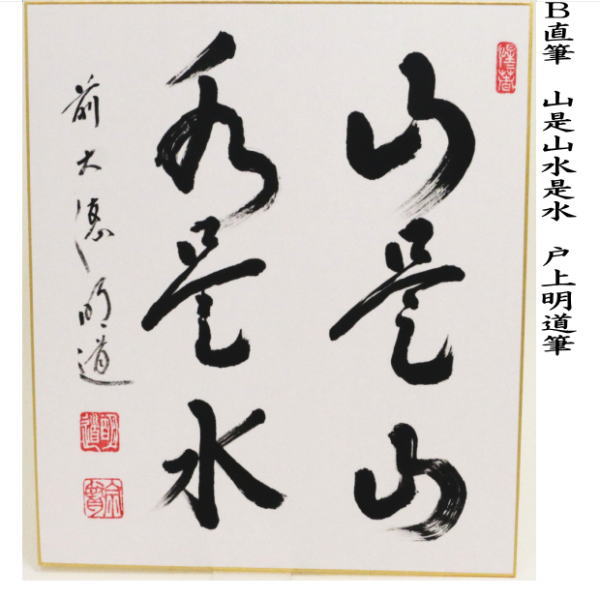 B直筆　山是山水是水　戸上明道筆
山是山
水是水
前大德明道
明道